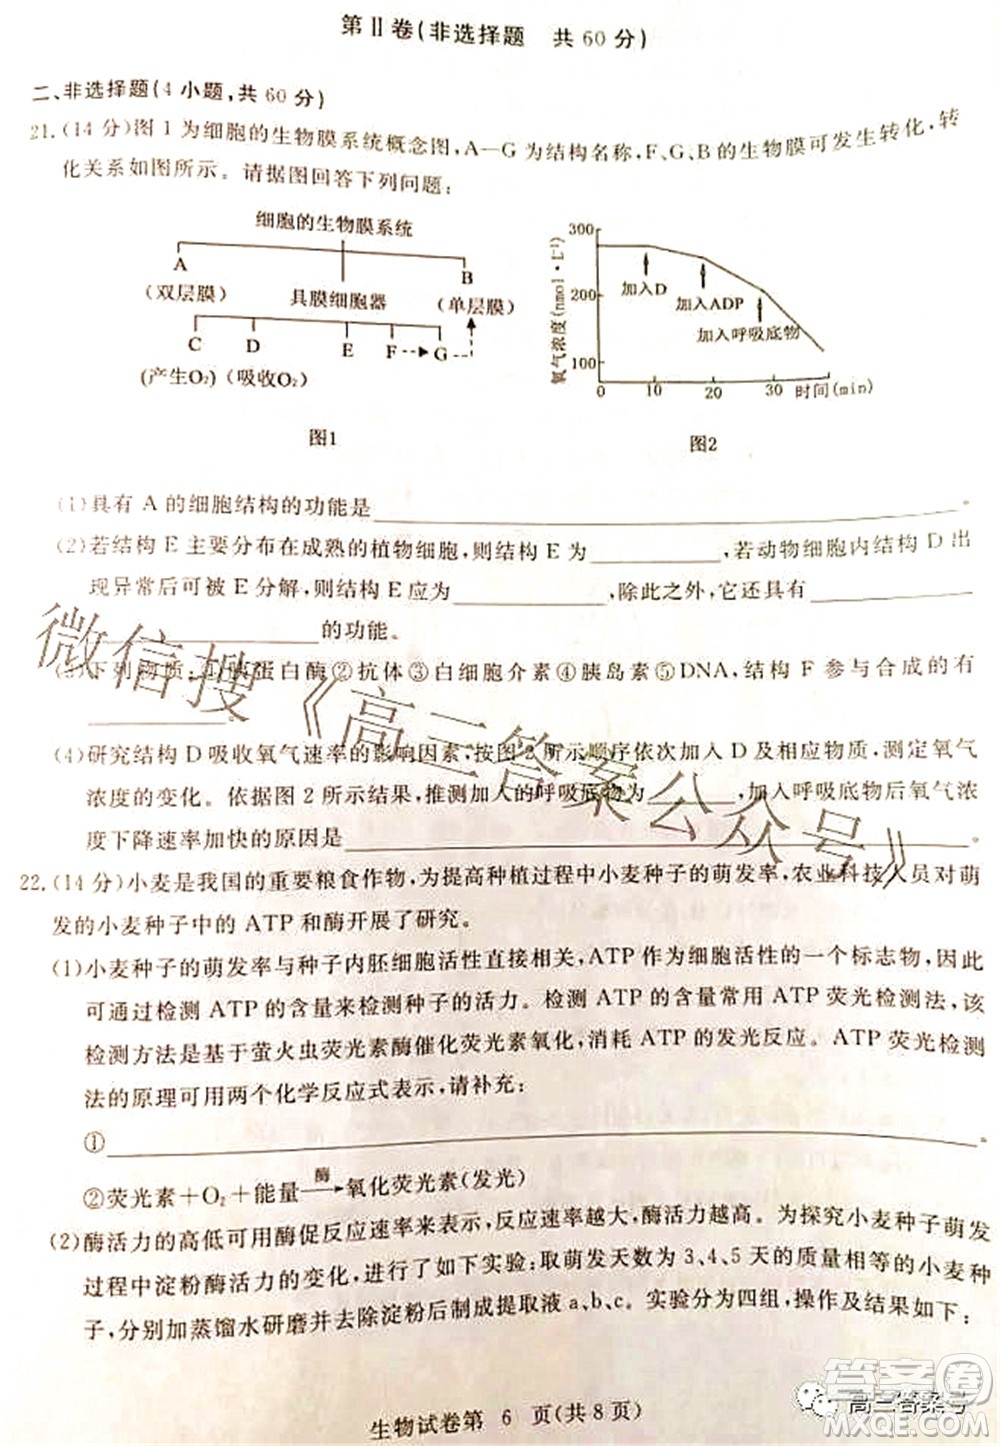 第Ⅱ卷(非选择题 共60分)
二、非选择题(4小题,共60分)
21.(14分)图1为细胞的生物膜系统概念图,A—G为结构名称,F、G、B的生物膜可发生转化,转
化关系如图所示。请据图回答下列问题:
细胞的生物膜系统
A
(双层膜)
具膜细胞器
B
(单层膜)
C D E F G
(产生O₂)(吸收O₂)
图1
氧气浓度(nmol·L⁻¹)
300
200
100
加入D
加入ADP
加入呼吸底物
0 10 20 30 时间(min)
图2
(1)具有A的细胞结构的功能是。
(2)若结构E主要分布在成熟的植物细胞,则结构E为,若动物细胞内结构D出
现异常后可被E分解,则结构E应为,除此之外,它还具有
的功能。
(3)下列物质:①胰蛋白酶②抗体③白细胞介素④胰岛素⑤DNA,结构F参与合成的有
。
(4)研究结构D吸收氧气速率的影响因素,按图2所示顺序依次加入D及相应物质,测定氧气
浓度的变化。依据图2所示结果,推测加入的呼吸底物为,加入呼吸底物后氧气浓
度下降速率加快的原因是。
22.(14分)小麦是我国的重要粮食作物,为提高种植过程中小麦种子的萌发率,农业科技人员对萌
发的小麦种子中的ATP和酶开展了研究。
(1)小麦种子的萌发率与种子内胚细胞活性直接相关,ATP作为细胞活性的一个标志物,因此
可通过检测ATP的含量来检测种子的活力。检测ATP的含量常用ATP荧光检测法,该
检测方法是基于萤火虫荧光素酶催化荧光素氧化,消耗ATP的发光反应。ATP荧光检测
法的原理可用两个化学反应式表示,请补充:
①
②荧光素+O₂+能量 酶→ 氧化荧光素(发光)
(2)酶活力的高低可用酶促反应速率来表示,反应速率越大,酶活力越高。为探究小麦种子萌发
过程中淀粉酶活力的变化,进行了以下实验:取萌发天数为3、4、5天的质量相等的小麦种
子,分别加蒸馏水研磨并去除淀粉后制成提取液a、b、c。实验分为四组,操作及结果如下:
生物试卷第 6 页(共8页)
微信搜《高三答案公众号》
高三答案号
答案圈
MXQE.COM